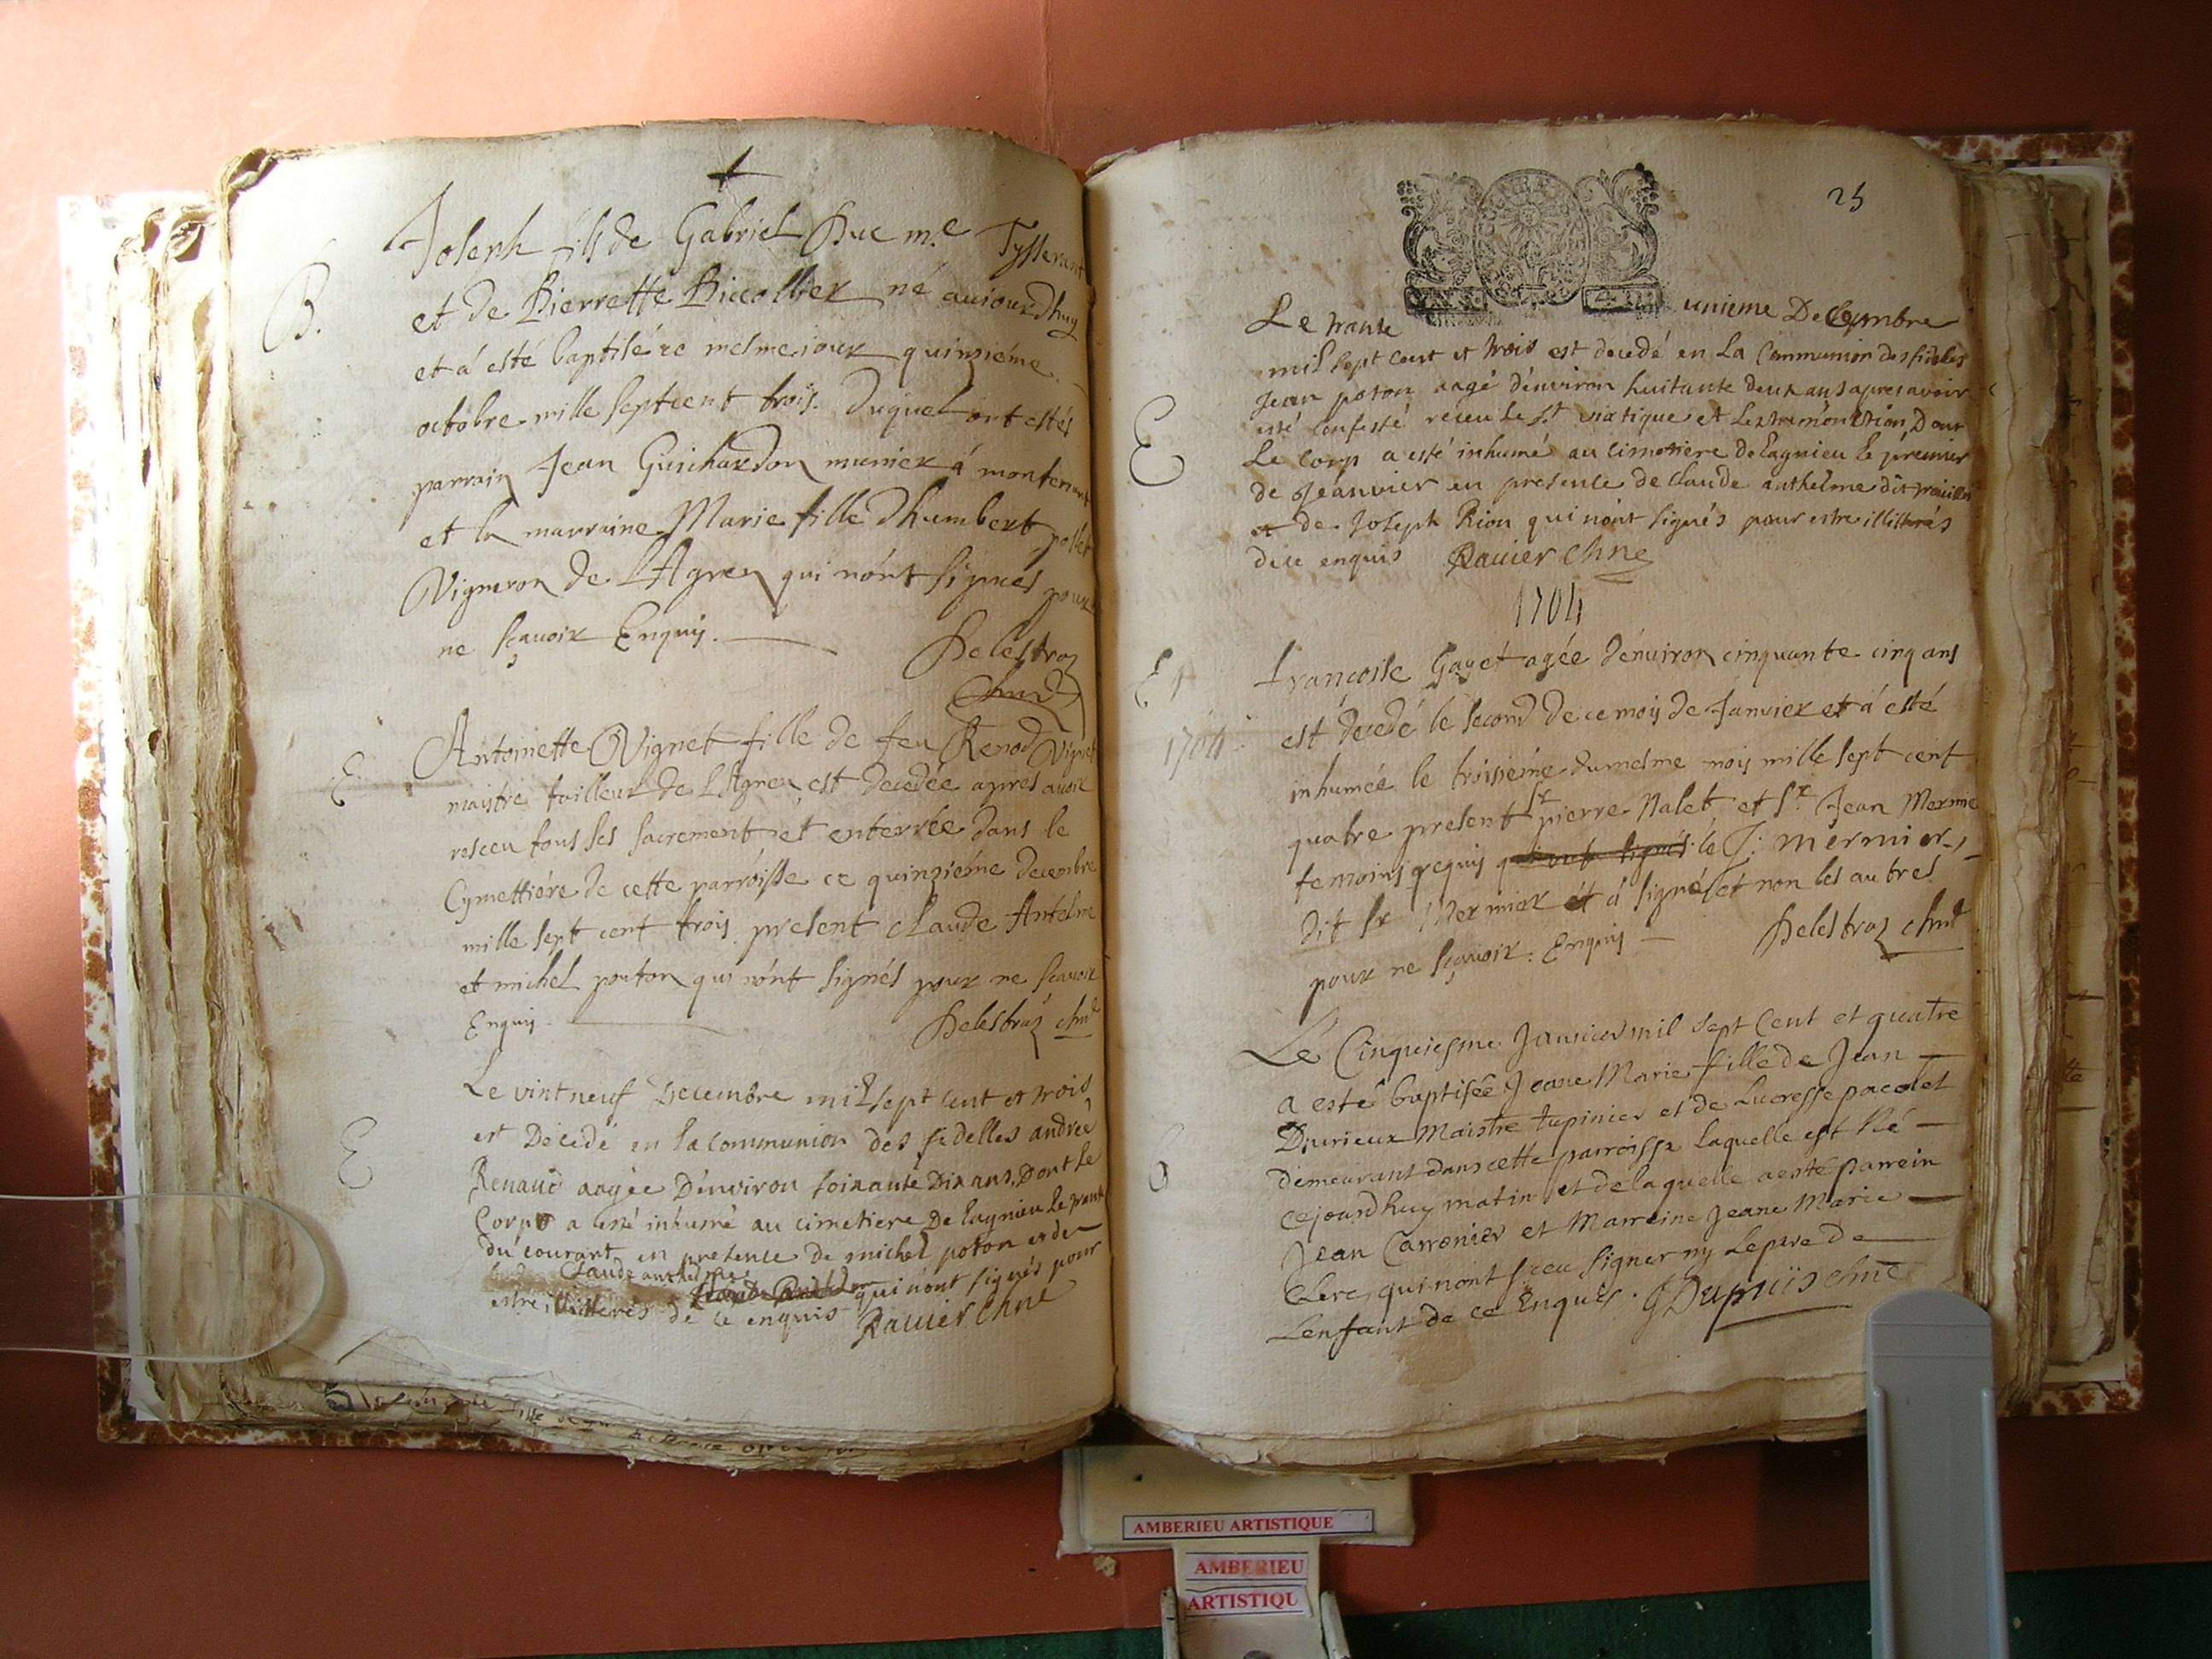 B.
Joseph fils de Gabriel Duc m.e Tysserant
et de Pierrette Biccollier né aujourdhuy
et á esté baptisé ce mesme jour quinziéme
octobre mille sept cent trois. Duquel ont estés
parrain Jean Guichardon munier á montferrant
et la marraine Marie fille dhumbert
Vigneron de LAgneu qui n'ont signés pour
ne sçavoir Enquis.
Delestraz
E
Antoinette Vignet fille de feu Renod Vignet
maistre tailleur de LAgneu est decedée apres avoir
resceu tous ses sacrement et enterrée dans le
Cymettiére de cette parroisse ce quinziéme decembre
mille sept cent trois present claude Antelme
et michel pouton qui n'ont signés pour ne scavoir
Enquis. Delestraz chne
E
Le vint neuf Decembre mil sept cent et trois
est Decedé en la communion des fidelles andreé
Renaud aagée D'environ soixante Dix ans, Dont le
Corps a esté inhumé au cimetiere De Lagnieu le trante
du courant en presence de michel poton et de
Claude anthelme
qui n'ont signés pour
estre illitterés de ce enquis Ravier Chne
25
Le trante unieme Decembre
mil sept cent et trois est decedé en la Communion des fideles
E
Jean poton aagé d'environ huitante deux ans apres avoir
esté confessé receu le St viatique et Lextremonction, Dont
Le Corp a esté inhumé au cimetiere de Lagnieu le premier
de Jeanvier en presence de Claude anthelme dit
et de Joseph Rion qui n'ont signés pour estre illitterés
de ce enquis Ravier Chne
1704
E 1
1704
francoise Gayet agée d'environ cinquante cinq ans
est decedé le second de ce mois de Janvier et á esté
inhumée le troisiéme du mesme mois mille sept cent
quatre present Sr pierre Nalet et Sr Jean Merme
temoins requis qui ont signés le J: mermier
dit Sr Mermier et á signé et non les autres
pour ne sçavoir. Enquis Delestraz chne
Le Cinquiesme Janvier mil sept Cent et quatre
a esté baptisée Jeane Marie fille de Jean
Durieux Maistre tupinier et de Lucresse pacolet
demeurant dans cette parroisse laquelle est Né
cejourdhuy matin et de laquelle a esté parrein
Jean Carronier et Marreine Jeane Marie
Clerc, qui nont sceu signer ny le pere de
Lenfant de ce Enquis. G Dupuiis chne
AMBERIEU ARTISTIQUE
AMBERIEU
ARTISTIQU